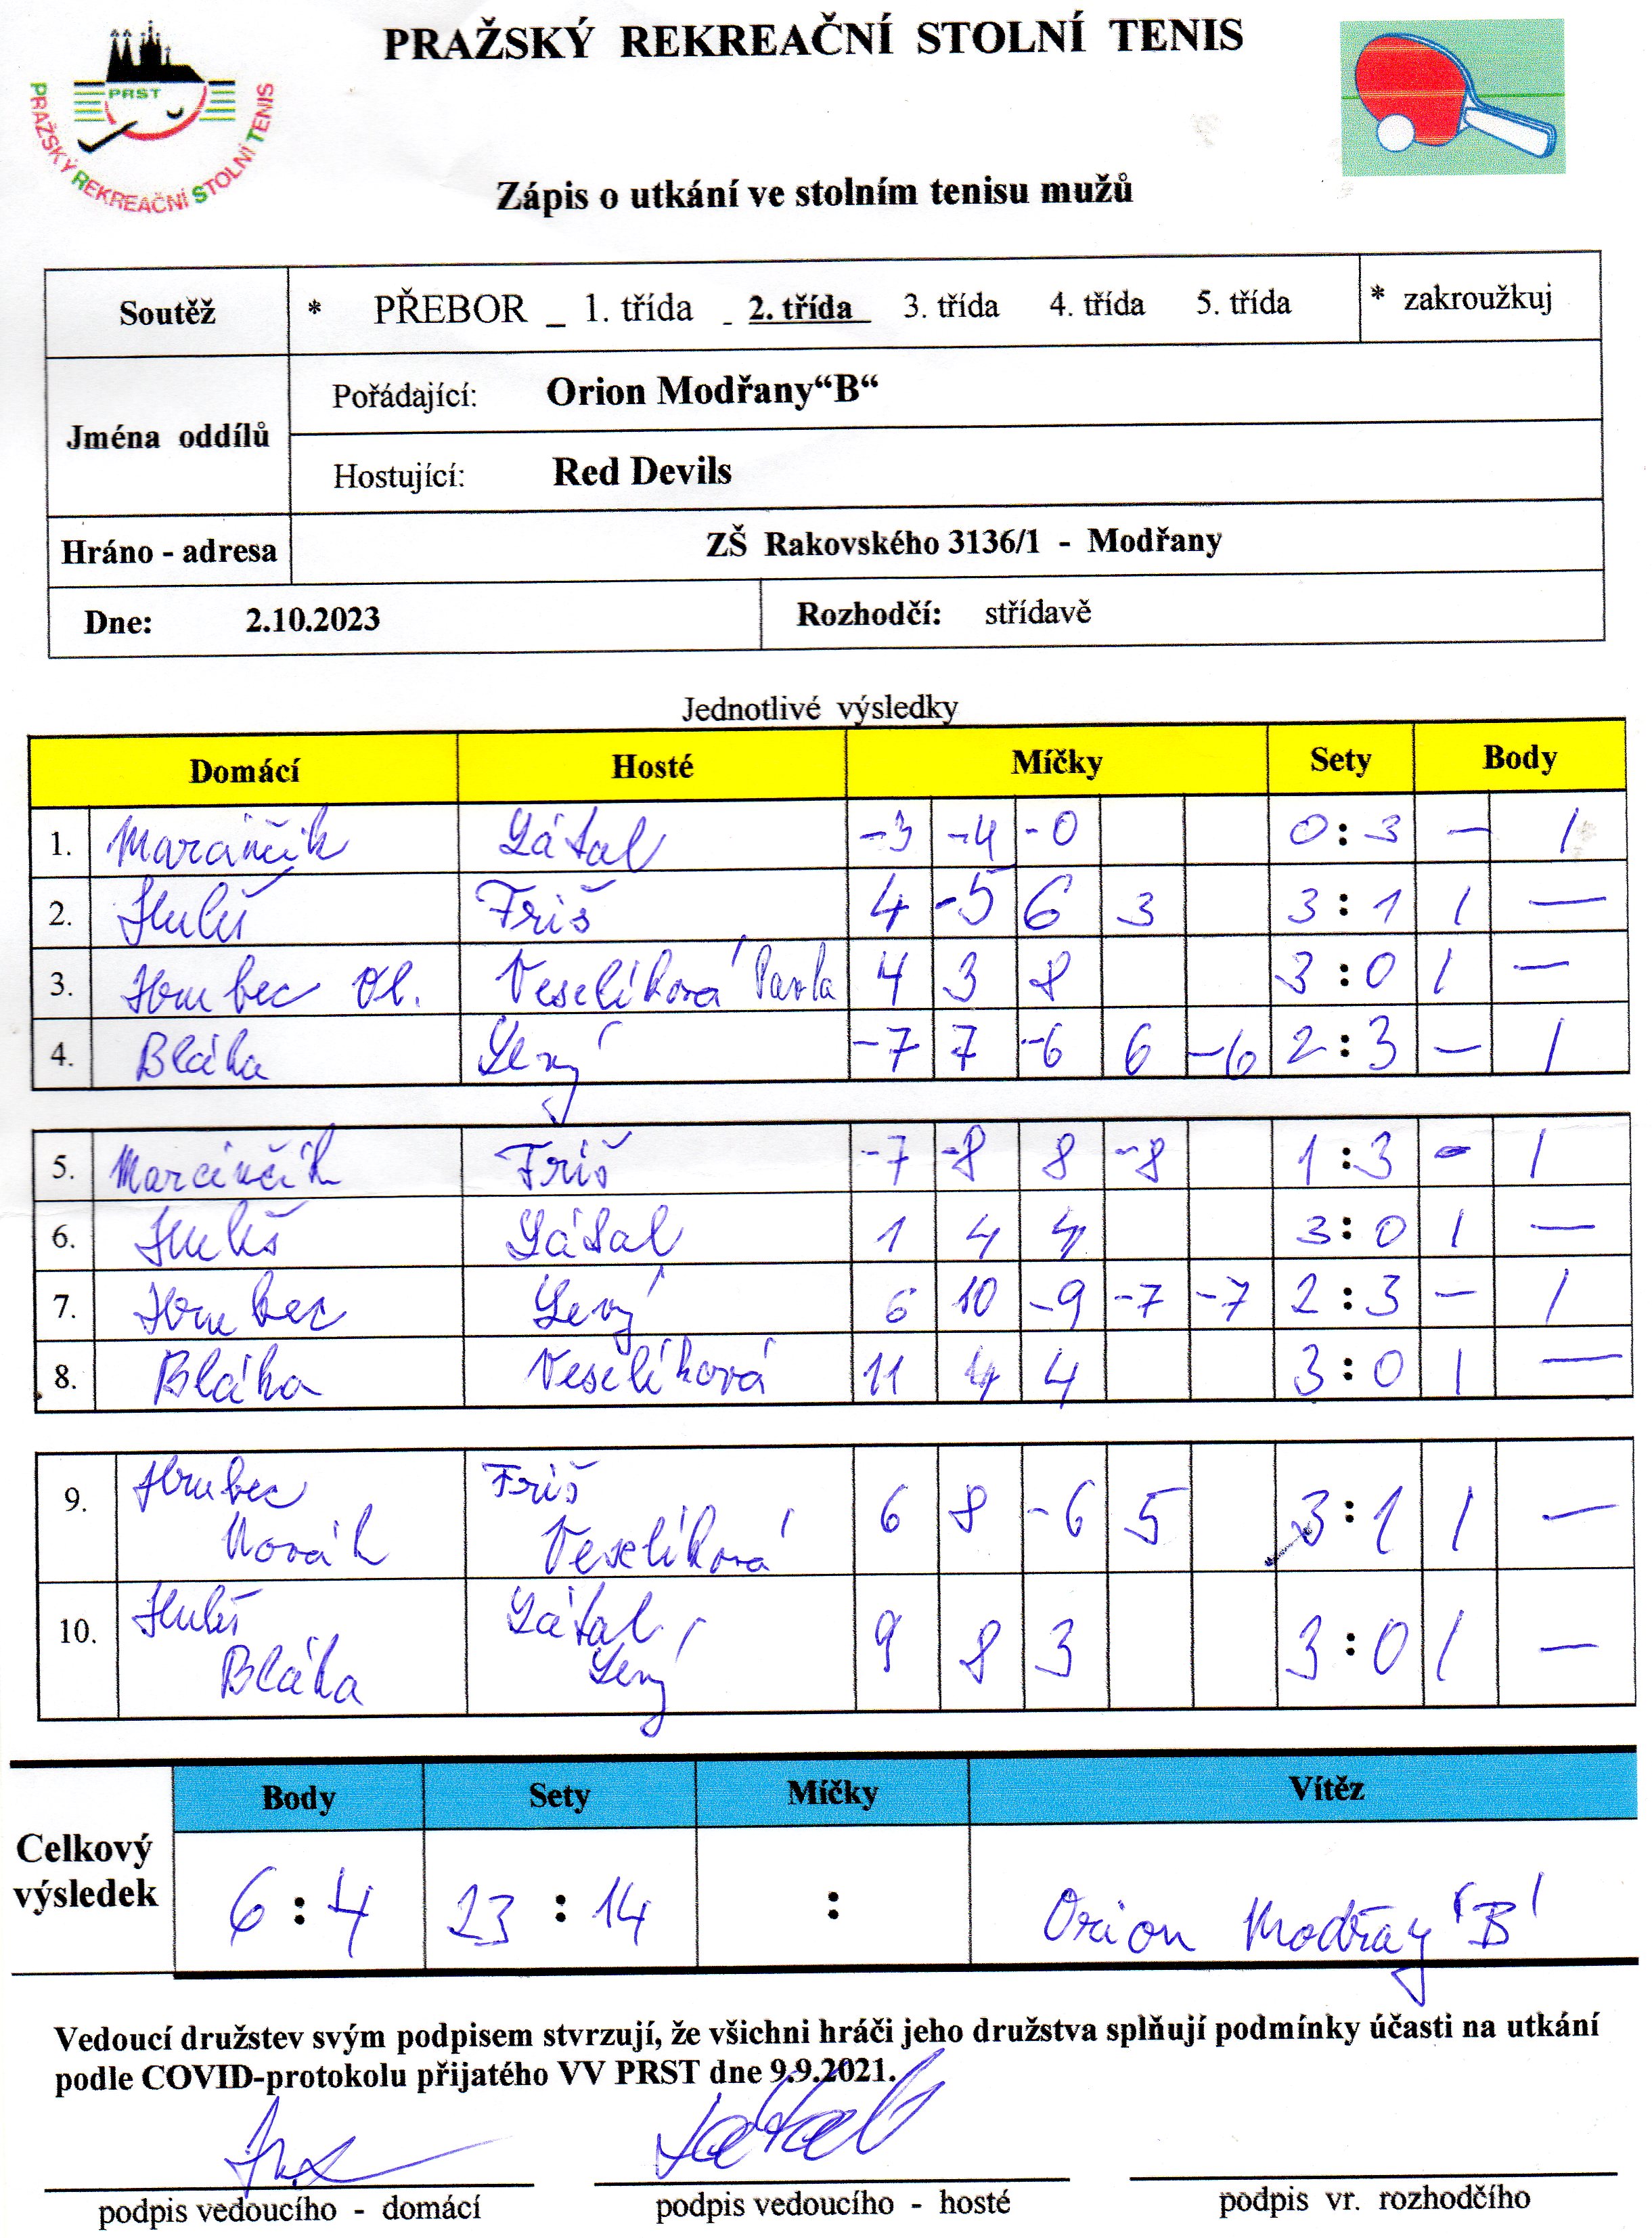 PRAŽSKÝ REKREAČNÍ STOLNÍ TENIS
PRST
PRAŽSKÝ REKREAČNÍ STOLNÍ TENIS
Zápis o utkání ve stolním tenisu mužů
Soutěž * PŘEBOR _ 1. třída - 2. třída 3. třída 4. třída 5. třída * zakroužkuj
Jména oddílů
Pořádající: Orion Modřany“B“
Hostující: Red Devils
Hráno - adresa ZŠ Rakovského 3136/1 - Modřany
Dne: 2.10.2023 Rozhodčí: střídavě
Jednotlivé výsledky
Domácí Hosté Míčky Sety Body
1. Marcinčik Látal -3 -4 -0 0:3 - 1
2. Friš 4 -5 6 3 3:1 1 -
3. Hrubec Ol. Veselíková Pavla 4 3 8 3:0 1 -
4. Bláha Levý -7 7 -6 6 -6 2:3 - 1
5. Marcinčik Friš -7 -8 8 -8 1:3 - 1
6. Látal 1 4 4 3:0 1 -
7. Hrubec Levý 6 10 -9 -7 -7 2:3 - 1
8. Bláha Veselíková 11 4 4 3:0 1 -
9. Hrubec Friš 6 8 -6 5 3:1 1 -
Novák Veselíková
10. Látal 9 8 3 3:0 1 -
Bláha Levý
Body Sety Míčky Vítěz
Celkový výsledek 6:4 23:14 : Orion Modřay "B"
Vedoucí družstev svým podpisem stvrzují, že všichni hráči jeho družstva splňují podmínky účasti na utkání
podle COVID-protokolu přijatého VV PRST dne 9.9.2021.
Látal
podpis vedoucího - domácí podpis vedoucího - hosté podpis vr. rozhodčího